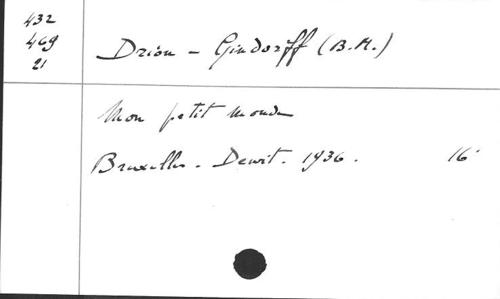 432
469
21
Drion - Gindorff (B.M.)
Mon petit monde
Bruxelles - Dewit. 1936. 16°